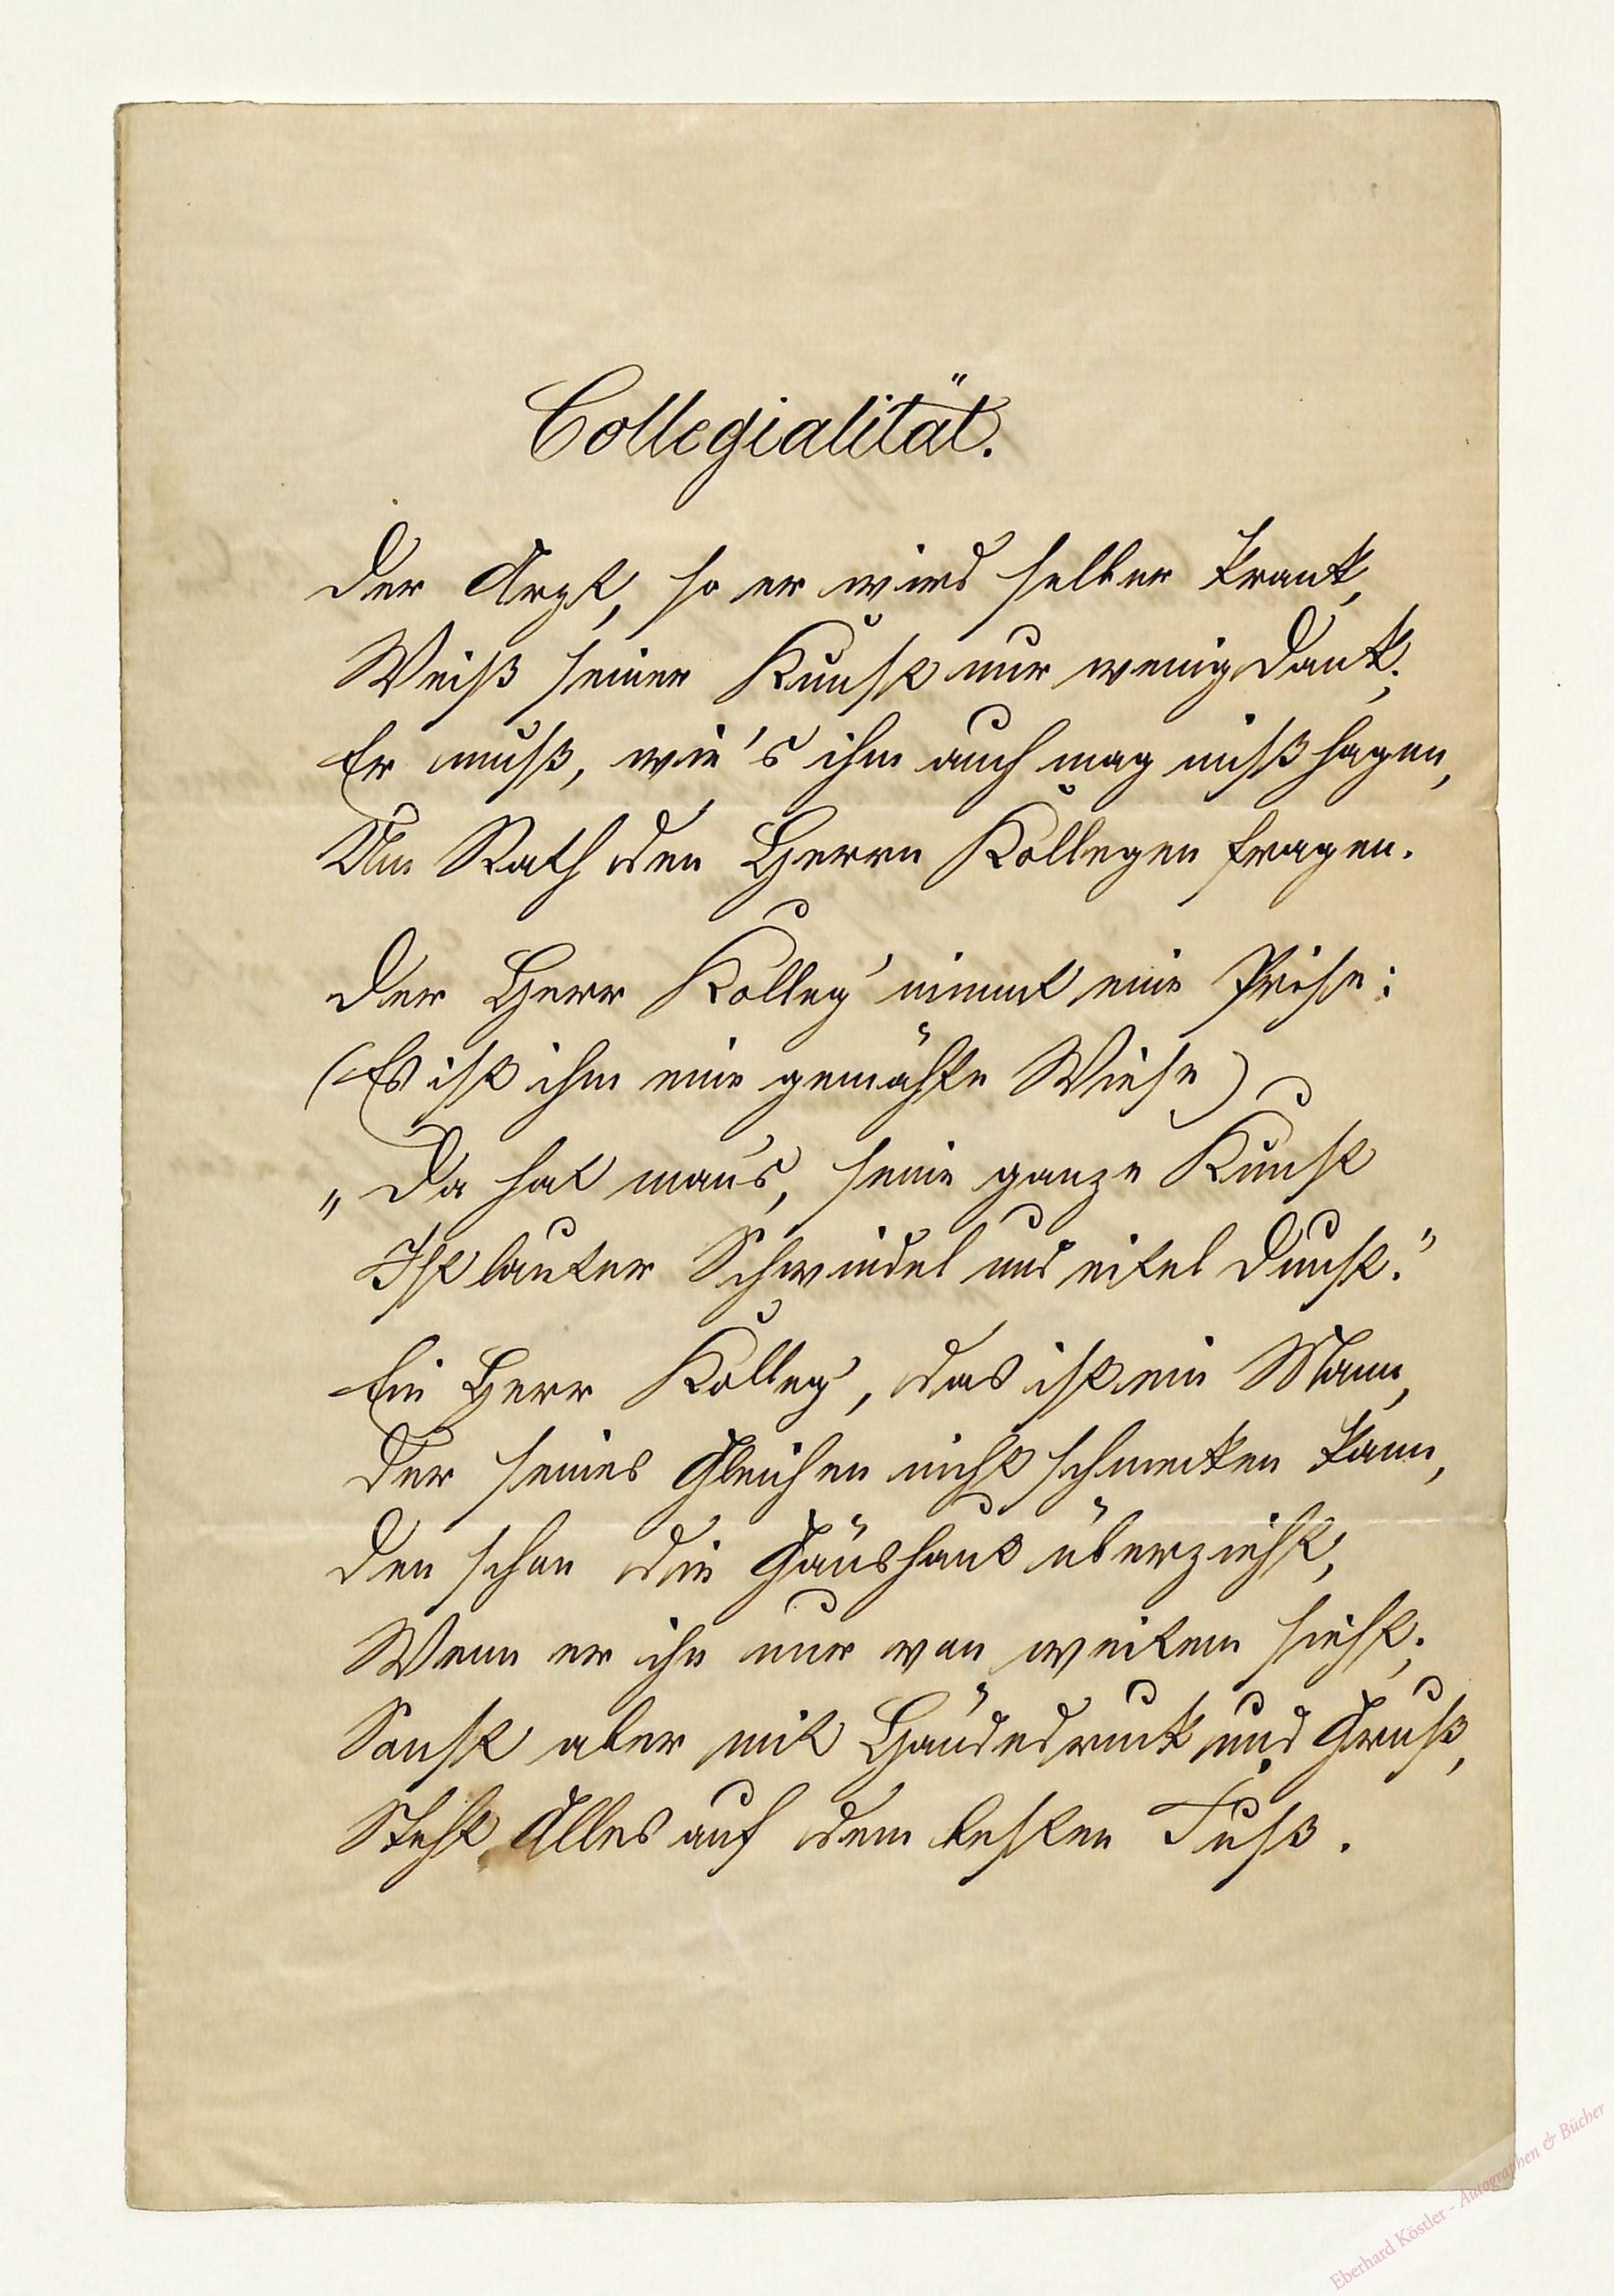 Collegialität.
Der Arzt, so er wird selber krank,
Weiß seiner Kunst nur wenig Dank;
Er muß, wie's ihm auch mag mißhagen,
Um Rath den Herrn Kollegen fragen.
Der Herr Kolleg' nimmt eine Prise:
(Es ist ihm eine gemähte Wiese)
„Da hat man's, seine ganze Kunst
Ist lauter Schwindel und eitel Dunst."
Ein Herr Kolleg', das ist ein Mann,
Der seines Gleichen nicht schmecken kann,
Den schon die Gänshaut überzieht,
Wenn er ihn nur von weitem sieht;
Sonst aber mit Händedruck und Gruß,
Steht Alles auf dem besten Fuß.
Eberhard Köstler - Autographen & Bücher